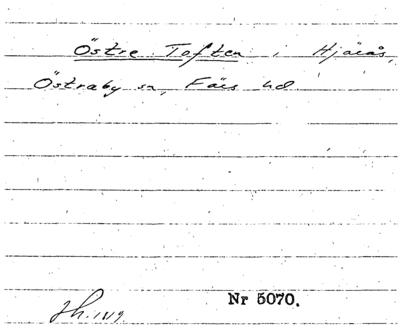 Östre Toften i Hjärås,
Östraby sn, Färs hd
Nr 5070.